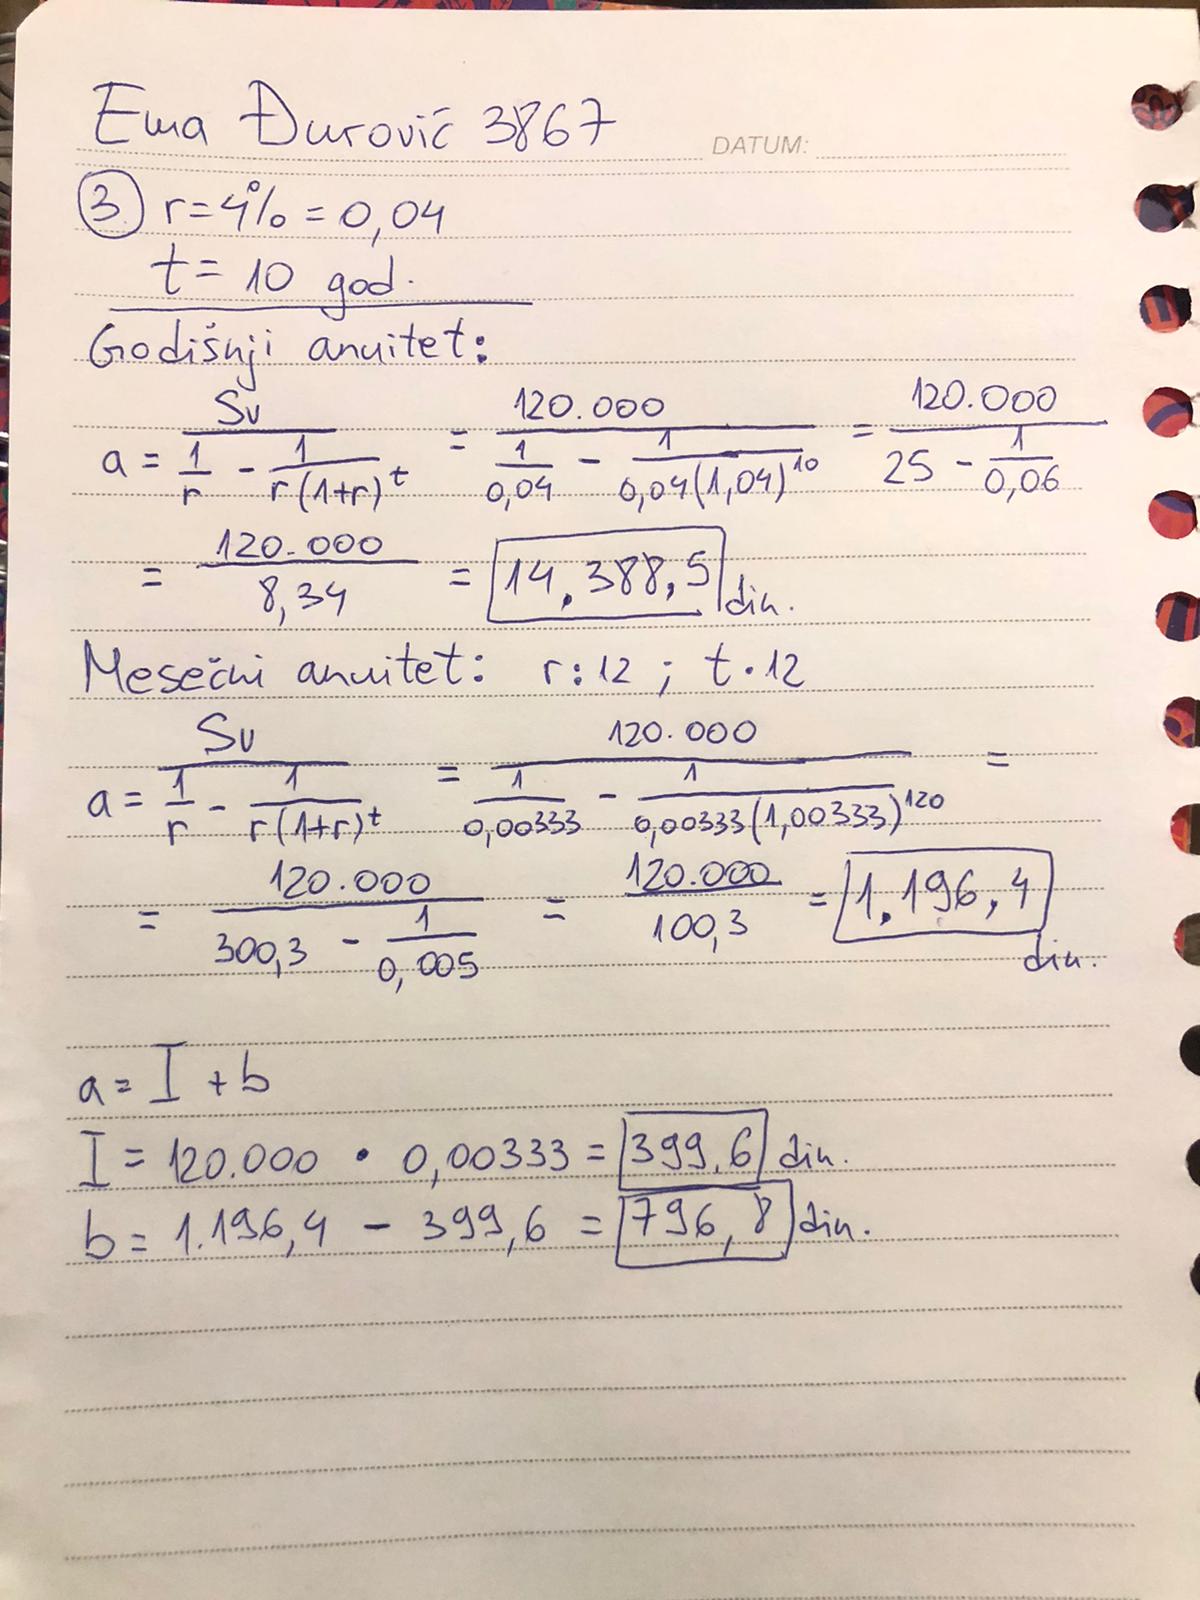 Ema Đurović 3867
DATUM:
3. r=4% = 0,04
t = 10 god.
Godišnji anuitet:
a = Sv / (1/r - 1/(r(1+r)^t)) = 120.000 / (1/0,04 - 1/(0,04(1,04)^10)) = 120.000 / (25 - 1/0,06)
= 120.000 / 8,34 = 14.388,5 din.
Mesečni anuitet: r:12 ; t·12
a = Sv / (1/r - 1/(r(1+r)^t)) = 120.000 / (1/0,00333 - 1/(0,00333(1,00333)^120)) =
= 120.000 / (300,3 - 1/0,005) = 120.000 / 100,3 = 1.196,4 din.
a = I + b
I = 120.000 · 0,00333 = 399,6 din.
b = 1.196,4 - 399,6 = 796,8 din.